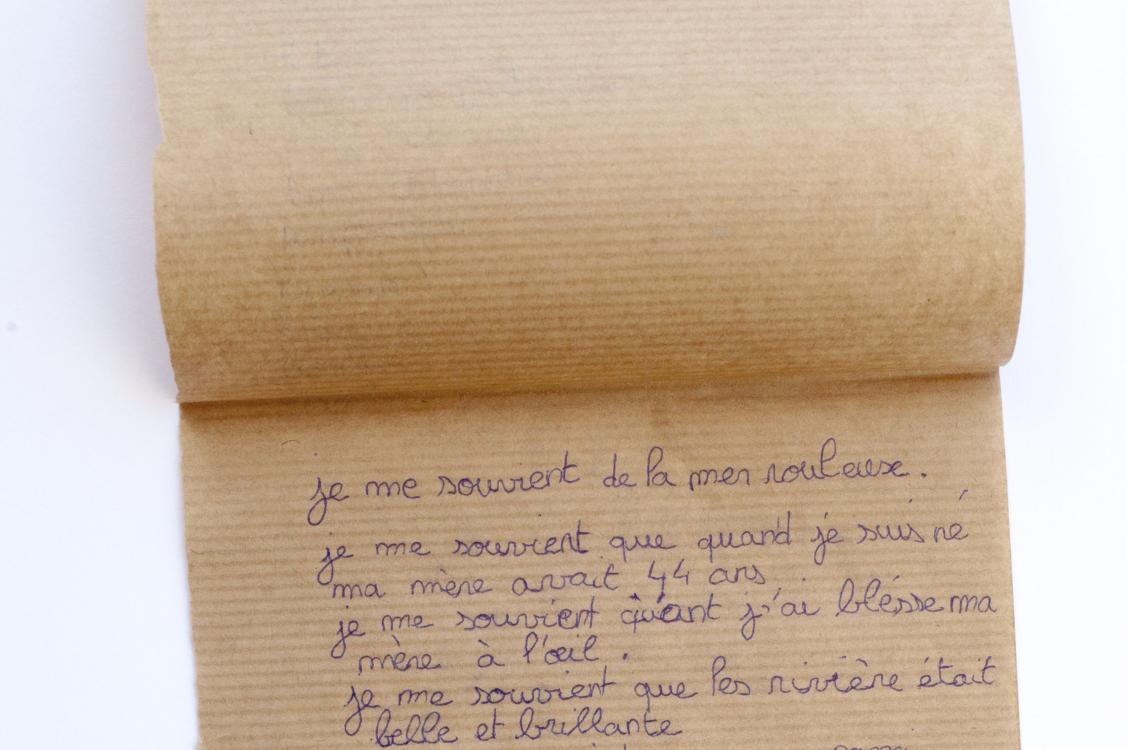 je me souvient de la mer rouleuse.
je me souvient que quand je suis né
ma mère avait 44 ans
je me souvient quant j'ai blésse ma
mère à l'œil.
je me souvient que les rivière était
belle et brillante